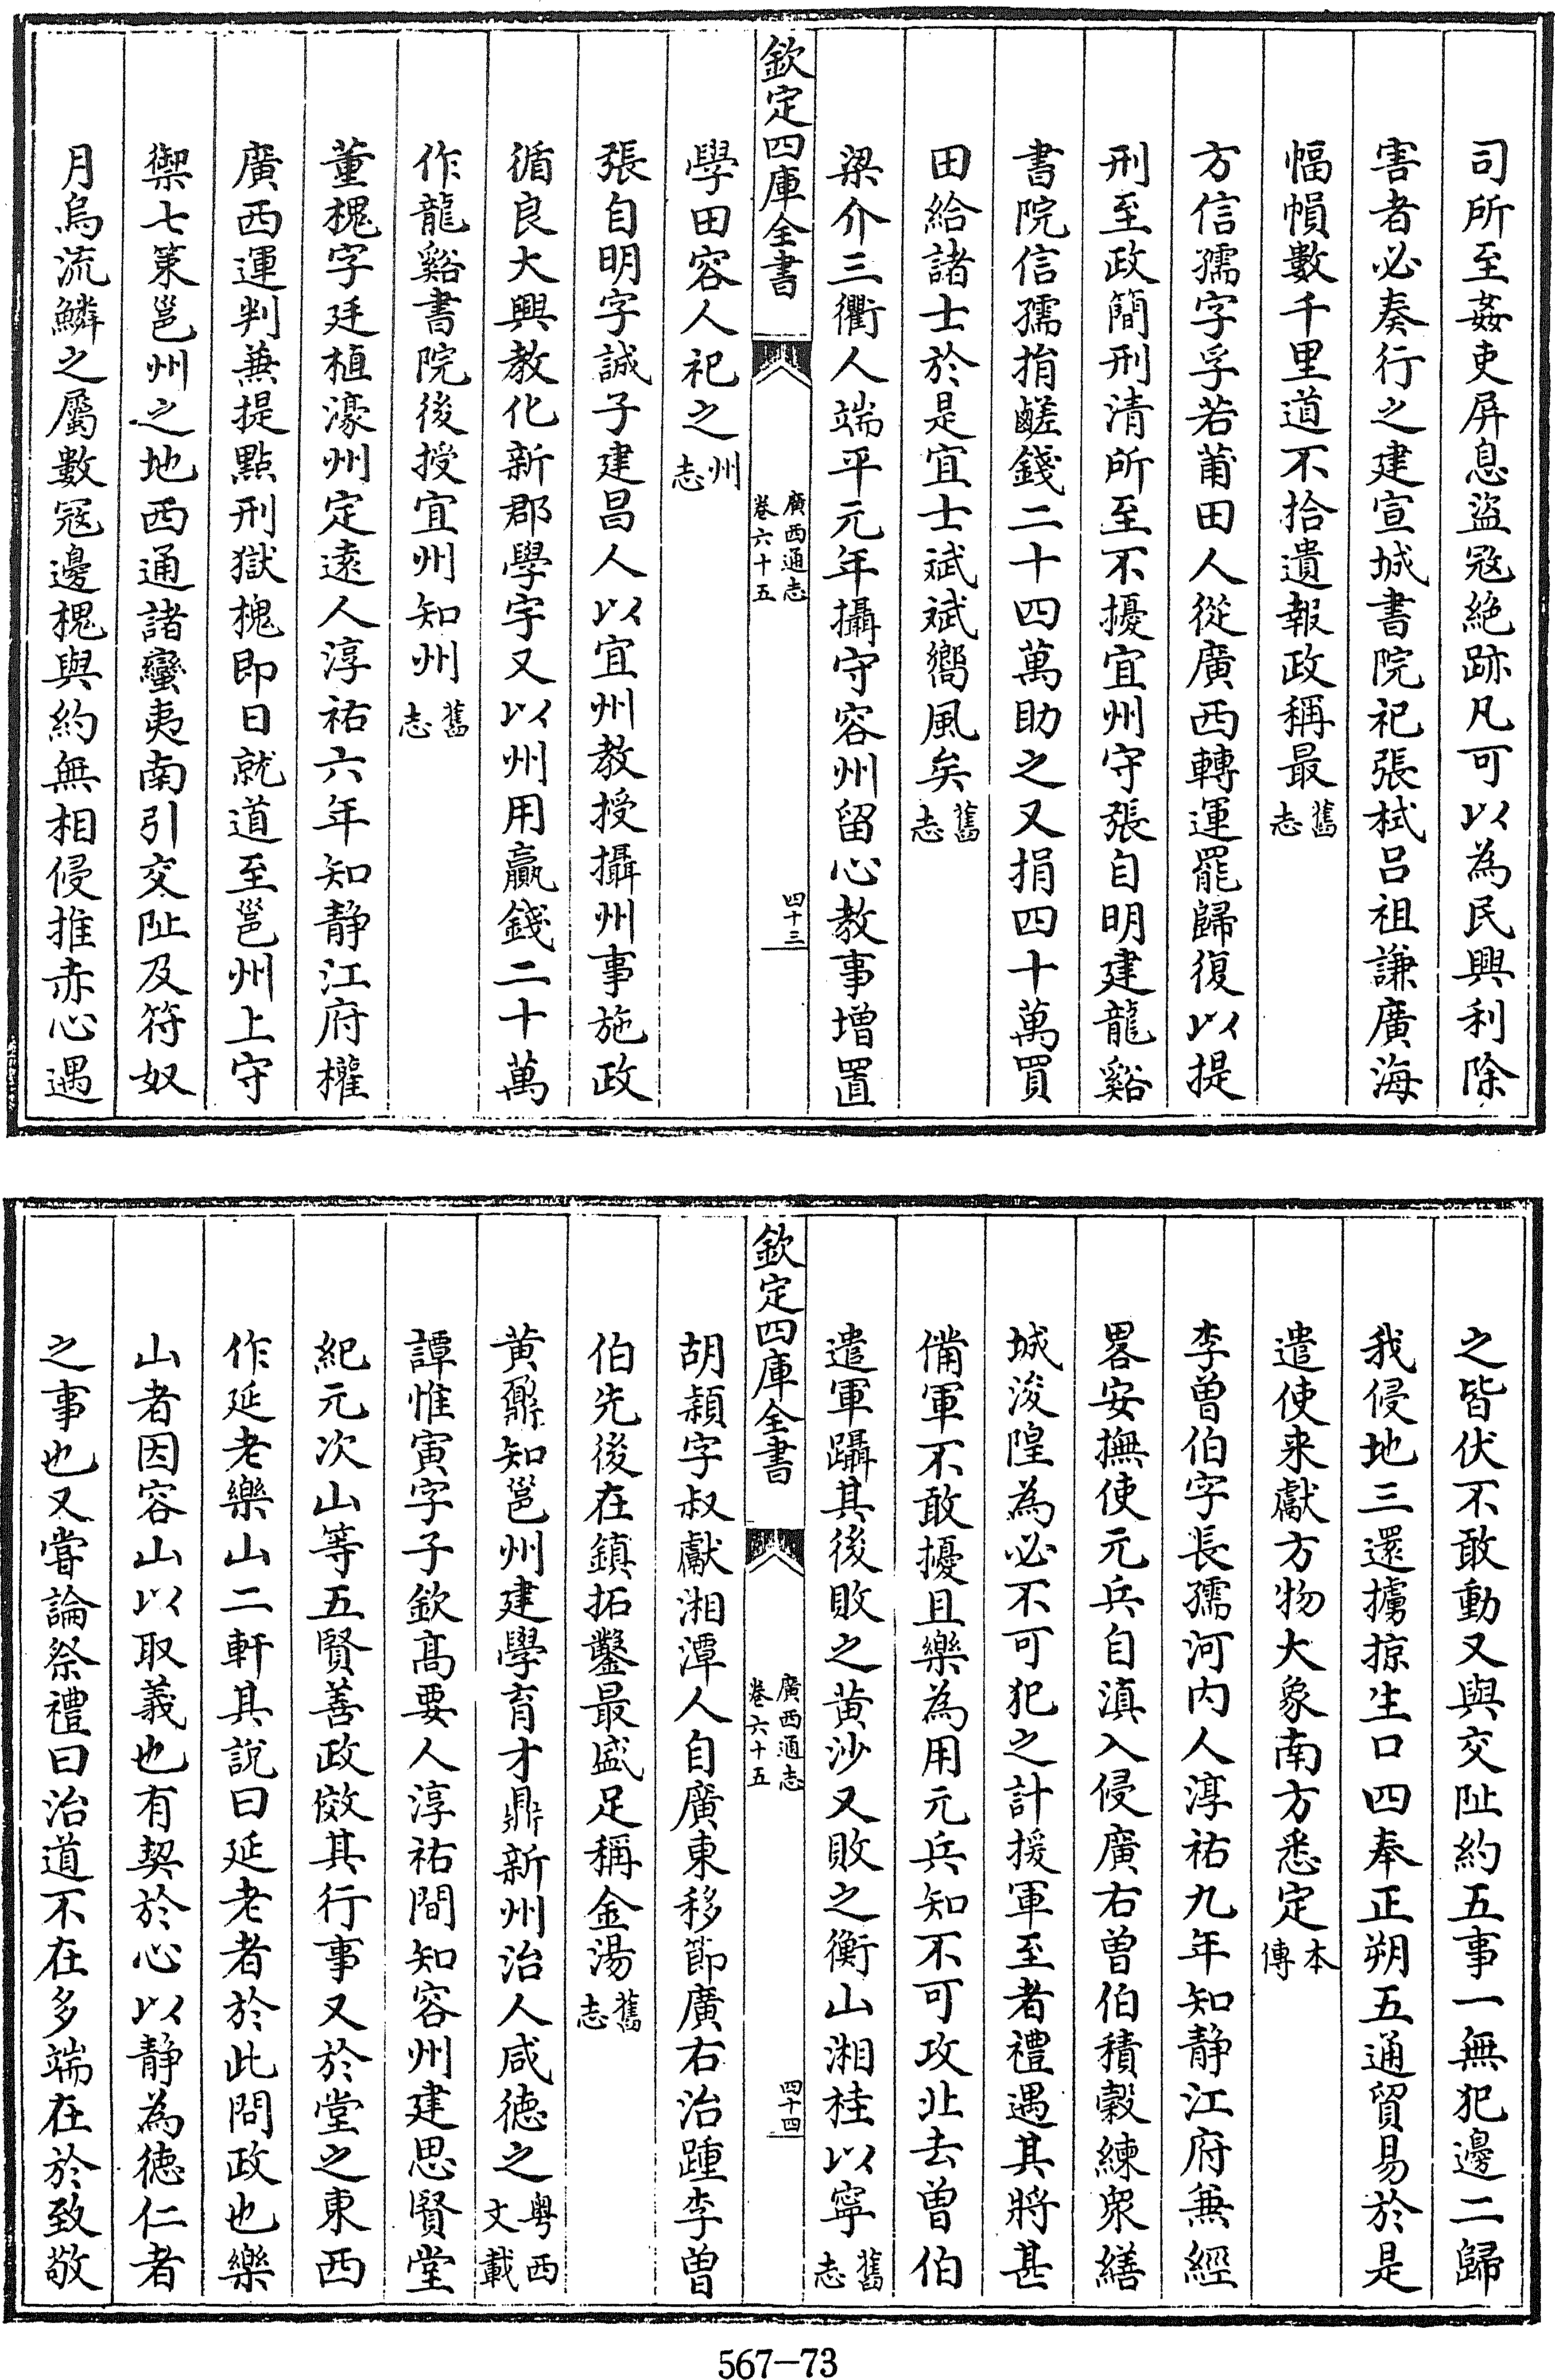 司所至姦吏屏息盜冦絶跡凡可以為民興利除
害者必奏行之建宣城書院祀張栻吕祖謙廣海
幅幀數千里道不拾遺報政稱最舊志
方信孺字孚若莆田人從廣西轉運罷歸復以提
刑至政簡刑清所至不擾宜州守張自明建龍谿
書院信孺捐鹺錢二十四萬助之又捐四十萬買
田給諸士於是宜士斌斌嚮風矣舊志
梁介三衢人端平元年攝守容州留心教事增置
欽定四庫全書
廣西通志
卷六十五
四十三
學田容人祀之州志
張自明字誠子建昌人以宜州教授攝州事施政
循良大興教化新郡學字又以州用贏錢二十萬
作龍谿書院後授宜州知州舊志
董槐字廷植濠州定遠人淳祐六年知静江府權
廣西運判兼提點刑獄槐即日就道至邕州上守
禦七策邕州之地西通諸蠻夷南引交阯及符奴
月烏流鱗之屬數冦邊槐與約無相侵推赤心遇
之皆伏不敢動又與交阯約五事一無犯邊二歸
我侵地三還擄掠生口四奉正朔五通貿易於是
遣使来獻方物大象南方悉定本傳
李曽伯字長孺河内人淳祐九年知静江府兼經
畧安撫使元兵自滇入侵廣右曽伯積穀練衆繕
城浚隍為必不可犯之計援軍至者禮遇其將甚
備軍不敢擾且樂為用元兵知不可攻北去曽伯
遣軍躡其後敗之黄沙又敗之衡山湘桂以寧舊志
欽定四庫全書
廣西通志
卷六十五
四十四
胡頴字叔獻湘潭人自廣東移節廣右治踵李曽
伯先後在鎮拓鑿最盛足稱金湯舊志
黄鼐知邕州建學育才鼎新州治人咸徳之粤西文載
譚惟寅字子欽高要人淳祐間知容州建思賢堂
紀元次山等五賢善政傚其行事又於堂之東西
作延老樂山二軒其説曰延老者於此問政也樂
山者因容山以取義也有契於心以静為徳仁者
之事也又嘗論祭禮曰治道不在多端在於致敬
567-73